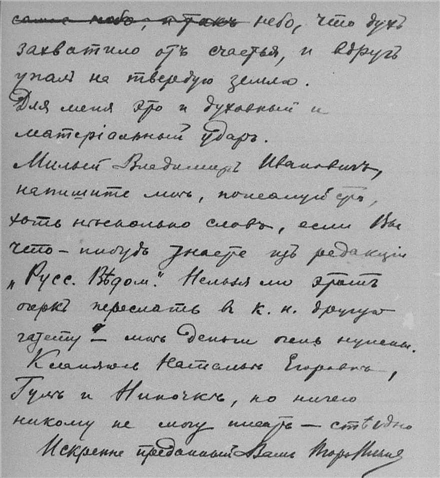 самое небо, и такъ небо, что духъ
захватило отъ счастья, и вдругъ
упалъ на твердую землю.
Для меня это и духовный и
матеріальный ударъ.
Милый Владимиръ Ивановичъ,
напишите мнѣ, пожалуйста,
хоть нѣсколько словъ, если Вы
что-нибудь знаете изъ редакціи
„Русс. Вѣдом." Нельзя ло этотъ
очеркъ переслать в к. н. другую
газету? – мнѣ деньги очень нужны.
Кланяюсь Натальѣ Егоровнѣ,
Гулѣ и Ниночкѣ, но ничего
никому не могу писать – стыдно
Искренне преданный Вамъ